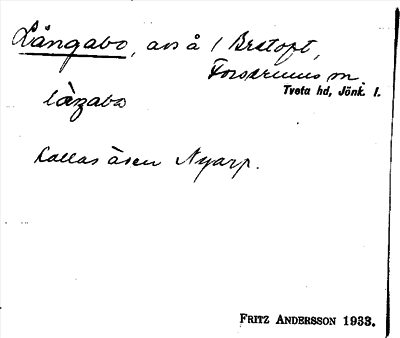 Långabo, avs å 1 Bratoft,
Forserums sn
Tveta hd, Jönk. l.
låŋabo
Kallas även Nyarp.
FRITZ ANDERSSON 1933.